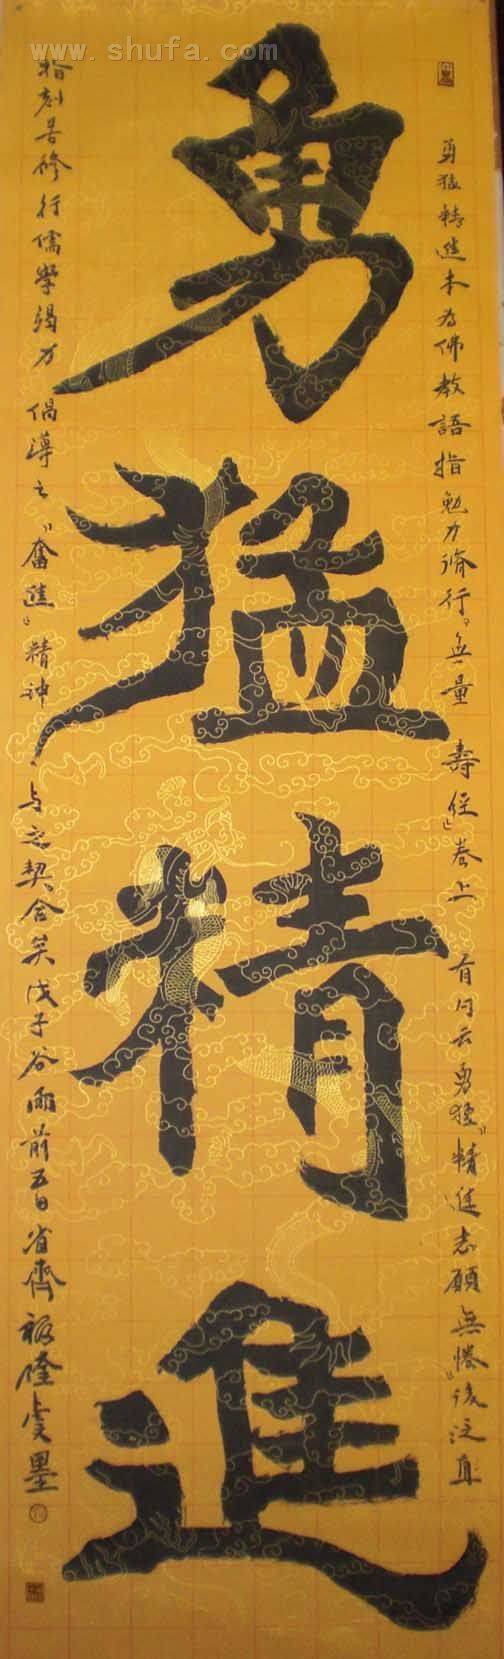 www.shufa.com
勇猛精進
勇猛精進本为佛教語指勉力脩行。無量壽經』卷上有问云勇猛』精進志願無惓』後泛
指刻苦修行儒學竭力倡導之"奮進』精神，与之契合矣戊子谷雨前五日省齊
墨